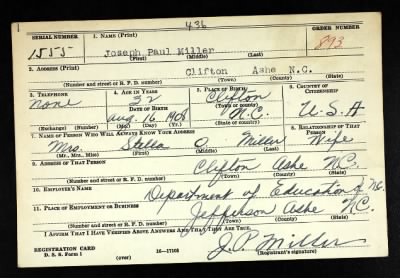 436
SERIAL NUMBER 1. NAME (Print) ORDER NUMBER
1555 Joseph Paul Miller 893
(First) (Middle) (Last)
2. ADDRESS (Print)
Clifton Ashe N.C.
(Number and street or R. F. D. number) (Town) (County) (State)
3. TELEPHONE 4. AGE IN YEARS 5. PLACE OF BIRTH 6. COUNTRY OF CITIZENSHIP
None 32 Clifton
DATE OF BIRTH (Town or county)
Aug. 16 1908 N.C. U.S.A
(Exchange) (Number) (Mo.) (Day) (Yr.) (State or country)
7. NAME OF PERSON WHO WILL ALWAYS KNOW YOUR ADDRESS 8. RELATIONSHIP OF THAT PERSON
Mrs. Stella O. Miller Wife
(Mr., Mrs., Miss) (First) (Middle) (Last)
9. ADDRESS OF THAT PERSON
Clifton Ashe N.C.
(Number and street or R. F. D. number) (Town) (County) (State)
10. EMPLOYER'S NAME
Department of Education of N.C.
11. PLACE OF EMPLOYMENT OR BUSINESS
Jefferson Ashe N.C.
(Number and street or R. F. D. number) (Town) (County) (State)
I AFFIRM THAT I HAVE VERIFIED ABOVE ANSWERS AND THAT THEY ARE TRUE.
REGISTRATION CARD
D. S. S. Form 1 16-17105 J.P. Miller
(Registrant's signature)